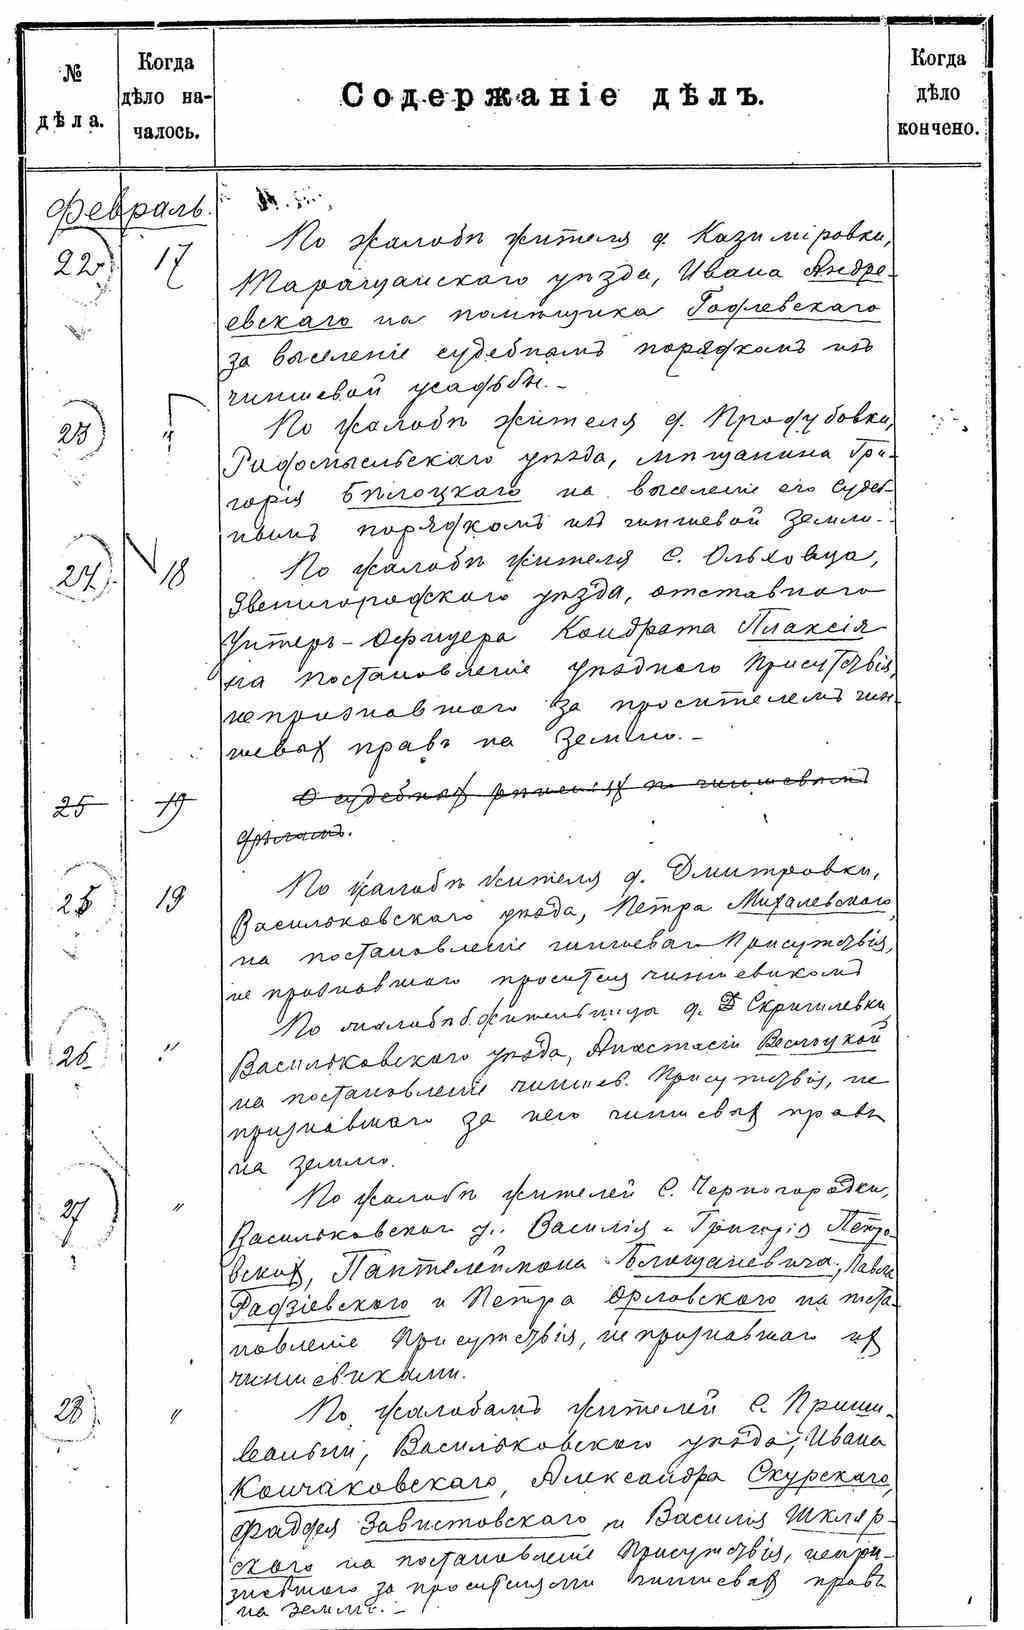 № дѣла.
Когда дѣло на-
чалось.
Содержаніе дѣлъ.
Когда дѣло кончено.
Февраль.
22. 17 По жалобѣ жителя д. Казиміровки,
Таращанскаго уѣзда, Ивана Андре-
евскаго на помѣщика Гофлевскаго
за выселеніе судебнымъ порядкомъ изъ
чиншевой усадьбы. –
23 " По жалобѣ жителя д. Продубовки,
Радомысльскаго уѣзда, мѣщанина Гри-
горія Бѣлоцкаго на выселеніе его судеб-
нымъ порядкомъ изъ чиншевой земли. -
24. 18 По жалобѣ жителя с. Ольховца,
Звенигородскаго уѣзда, отставного
Унтеръ-Офицера Кондрата Плаксія
на постановленіе уѣзднаго Присутствія,
непризнавшаго за просителемъ чин-
шевых правъ на землю. –
25 19 О судебных рѣшеніях по чиншевымъ
дѣламъ.
25 19 По жалобѣ жителя д. Дмитровки,
Васильковскаго уѣзда, Петра Михалевскаго,
на постановленіе чиншеваго Присутствія,
не признавшаго просителя чиншевикомъ
26 " По жалобѣ жительницы д. Скригилевки,
Васильковскаго уѣзда, Анастасіи Весолуцкой
на постановленіе чиншев. Присутствія, не
признавшаго за него чиншевых правъ
на землю.
27 " По жалобѣ жителей с. Черногородки,
Васильковскаго у. Василія и Григорія Петро-
вских, Пантелеймона Блощаневича, Павла
Радзіевскаго и Петра Орловскаго на поста-
новленіе Присутствія, непризнавшаго их
чиншевиками.
28. " По жалобамъ жителей с. Приши-
вальни, Васильковскаго уѣзда, Ивана
Кончаковскаго, Александра Скурскаго,
Фаддея Завистовскаго и Василія Шкляр-
скаго на постановленіе Присутствія, непри-
знавшаго за просителями чиншевых правъ
на землю. –